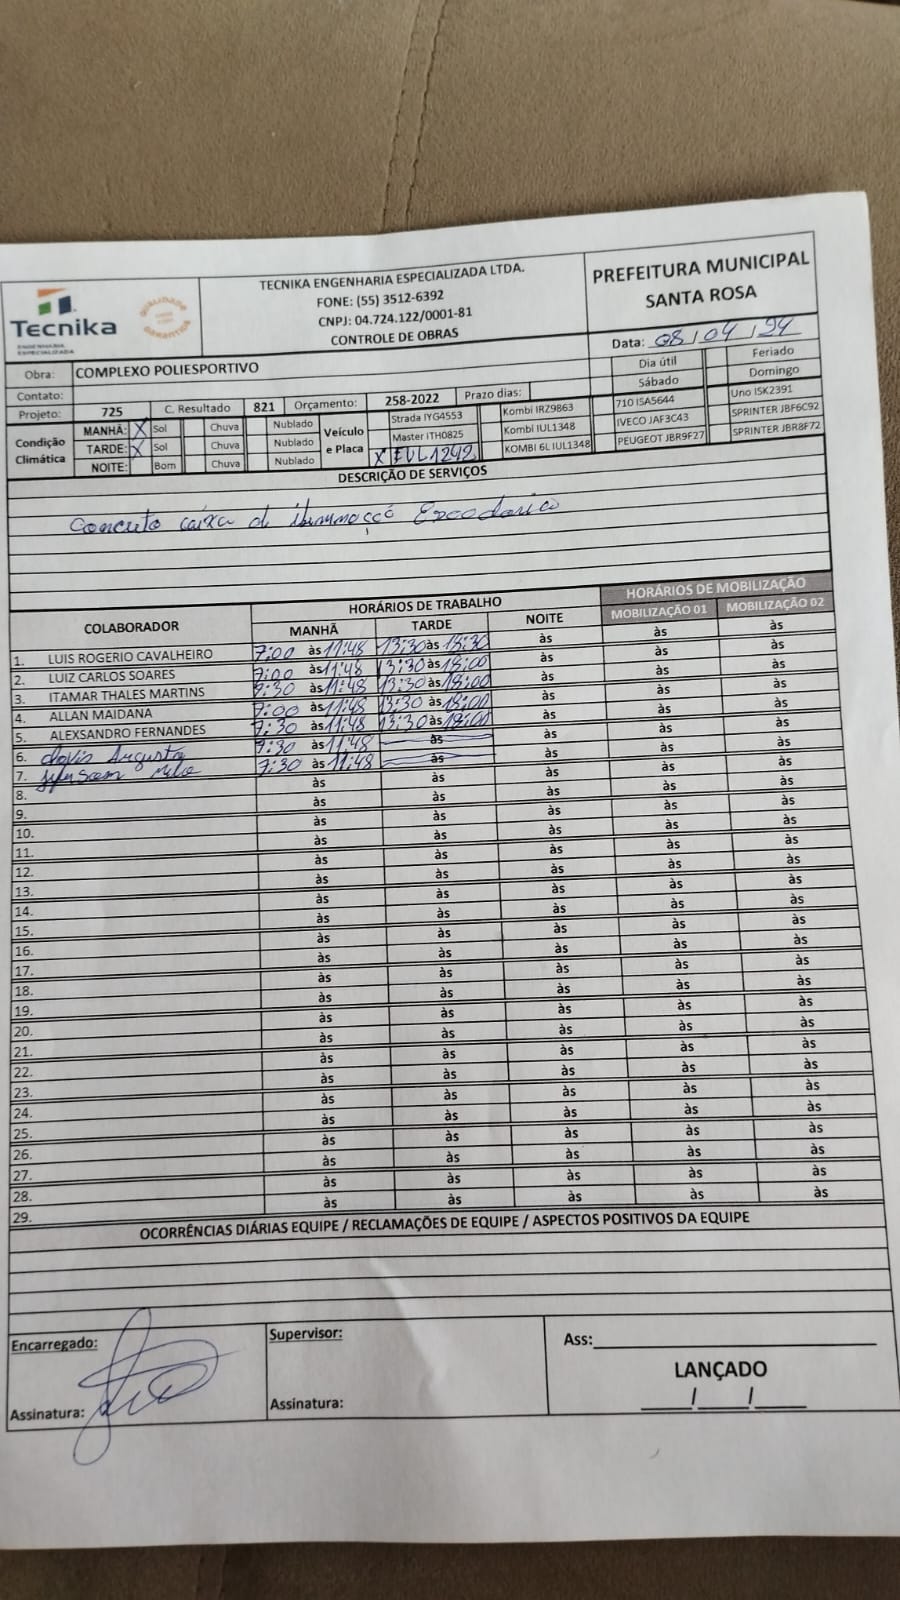 Tecnika
ENGENHARIA
ESPECIALIZADA
QUALIDADE
GARANTIDA
TECNIKA ENGENHARIA ESPECIALIZADA LTDA.
FONE: (55) 3512-6392
CNPJ: 04.724.122/0001-81
CONTROLE DE OBRAS
PREFEITURA MUNICIPAL
SANTA ROSA
Data: 08 / 04 / 24
Obra: COMPLEXO POLIESPORTIVO
Dia útil Feriado
Contato:
Sábado Domingo
Projeto: 725 C. Resultado 821 Orçamento: 258-2022 Prazo dias:
Condição Climática
MANHÃ: X Sol Chuva Nublado
TARDE: X Sol Chuva Nublado
NOITE: Bom Chuva Nublado
Veículo e Placa
Strada IYG4553 Kombi IRZ9863 710 ISA5644 Uno ISK2391
Master ITH0825 Kombi IUL1348 IVECO JAF3C43 SPRINTER JBF6C92
X EVL1242 KOMBI 6L IUL1348 PEUGEOT JBR9F27 SPRINTER JBR8F72
DESCRIÇÃO DE SERVIÇOS
Concreto caixa d
COLABORADOR HORÁRIOS DE TRABALHO HORÁRIOS DE MOBILIZAÇÃO
MANHÃ TARDE NOITE MOBILIZAÇÃO 01 MOBILIZAÇÃO 02
1. LUIS ROGERIO CAVALHEIRO 7:00 às 11:48 13:30 às 18:30 às às às
2. LUIZ CARLOS SOARES 7:00 às 11:48 13:30 às 18:00 às às às
3. ITAMAR THALES MARTINS 7:30 às 11:48 13:30 às 18:00 às às às
4. ALLAN MAIDANA 7:00 às 11:48 13:30 às 18:00 às às às
5. ALEXSANDRO FERNANDES 7:30 às 11:48 13:30 às 18:00 às às às
6. Augusto 7:30 às 11:48 às às às às
7. 7:30 às 11:48 às às às às
8. às às às às às
9. às às às às às
10. às às às às às
11. às às às às às
12. às às às às às
13. às às às às às
14. às às às às às
15. às às às às às
16. às às às às às
17. às às às às às
18. às às às às às
19. às às às às às
20. às às às às às
21. às às às às às
22. às às às às às
23. às às às às às
24. às às às às às
25. às às às às às
26. às às às às às
27. às às às às às
28. às às às às às
29. às às às às às
OCORRÊNCIAS DIÁRIAS EQUIPE / RECLAMAÇÕES DE EQUIPE / ASPECTOS POSITIVOS DA EQUIPE
Encarregado:
Assinatura:
Supervisor:
Assinatura:
Ass:
LANÇADO
/ /